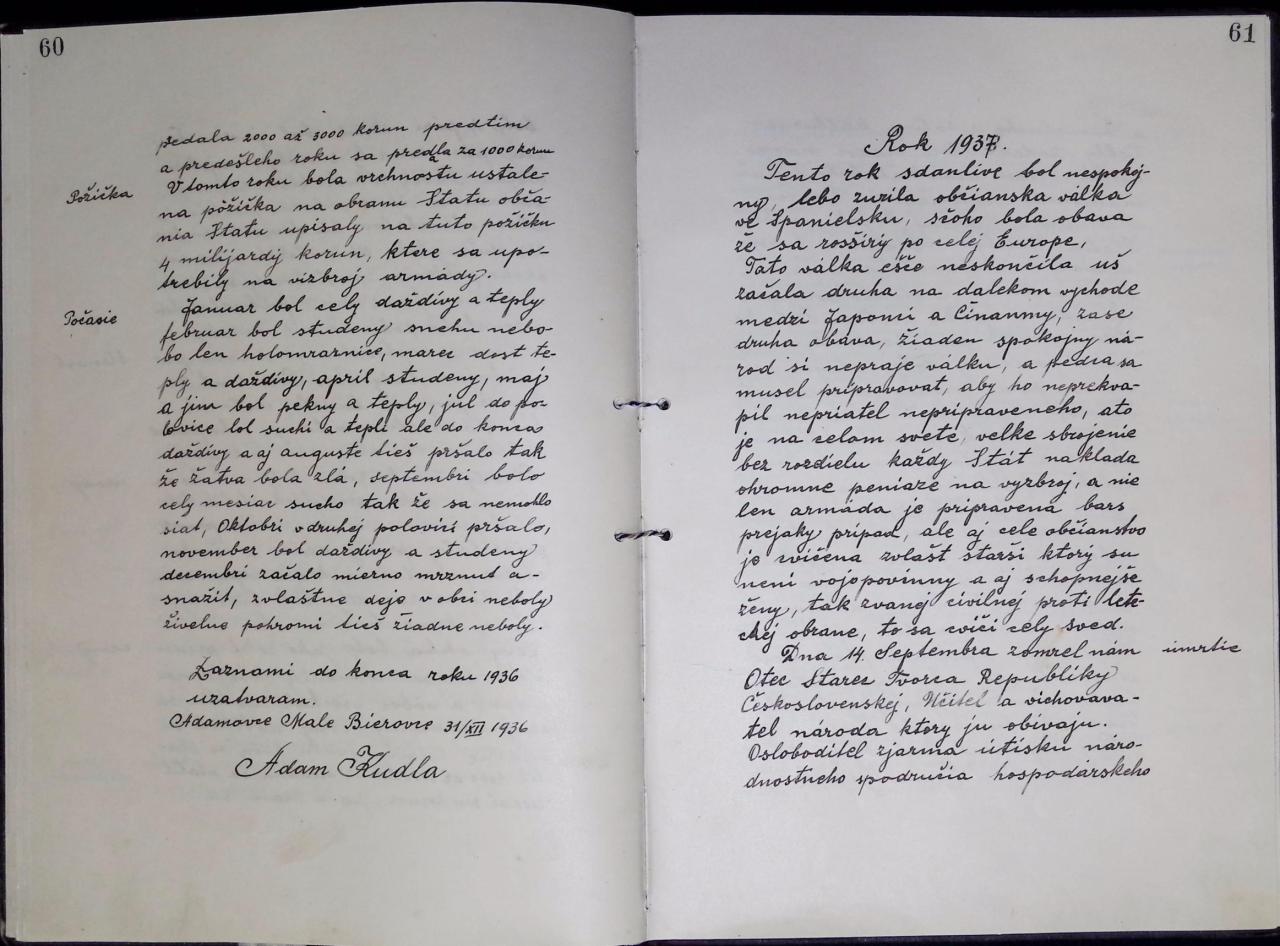 60
predala 2000 až 3000 korun predtim
a predešleho roku sa predala za 1000 korun
Požička
V tomto roku bola vrchnosťu ustale-
na pôžička na obranu Štatu obča-
nia Štatu upisaly na tuto požičku
4 milijardy korun, ktere sa upo-
trebily na vizbroj armády.
Počasie
Januar bol cely daždivy a teply
februar bol studeny snehu nebo-
bo len holomraznice, marec dost te-
ply a daždivy, april studeny, maj
a jun bol pekny a teply, jul do po-
lovice bol suchi a tepli ale do konca
daždivy a aj auguste tiež pršalo tak
že žatva bola zlá, septembri bolo
cely mesiac sucho tak že sa nemohlo
siat, Oktobri v druhej polovini pršalo,
november bol daždivy a studeny
decembri začalo mierno mrznut a-
snažit, zvlaštne deje v obci neboly
živelne pohromi tiež žiadne neboly.
Zaznami do konca roku 1936
uzatvaram.
Adamovce Male Bierovce 31/XII 1936
Adam Kudla
61
Rok 1937.
Tento rok sdanlive bol nespokoj-
ny, lebo zuzila občianska válka
ve Španielsku, sčoho bola obava
že sa rosširy po celej Europe,
Táto válka ešče neskončila uš
začala druha na dalekom vychode
medzi Japonci a Činanmy, zase
druha obava, žiaden spokojny ná-
rod si nepraje válku, a predca sa
musel pripravovat, aby ho neprekva-
pil nepriatel nepripraveneho, ato
je na celom svete, velke sbrojenie
bez rozdielu každy Štát naklada
ohromne peniaze na vyzbroj, a nie
len armáda je pripravená bars
prejaky pripad, ale aj cele občianstvo
je cvičena zvlašt starši ktory su
neni vojopovinny a aj schopnejše
ženy, tak zvanej civilnej proti lete-
ckej obrane, to sa cviči cely sved.
Dna 14. Septembra zomrel nám
úmrtie
Otec Starec Tvorca Republiky
Československej, Učitel a vichovava-
tel národa ktory ju obivaju.
Osloboditel zjarma útisku náro-
dnostneho spodručia hospodárskeho